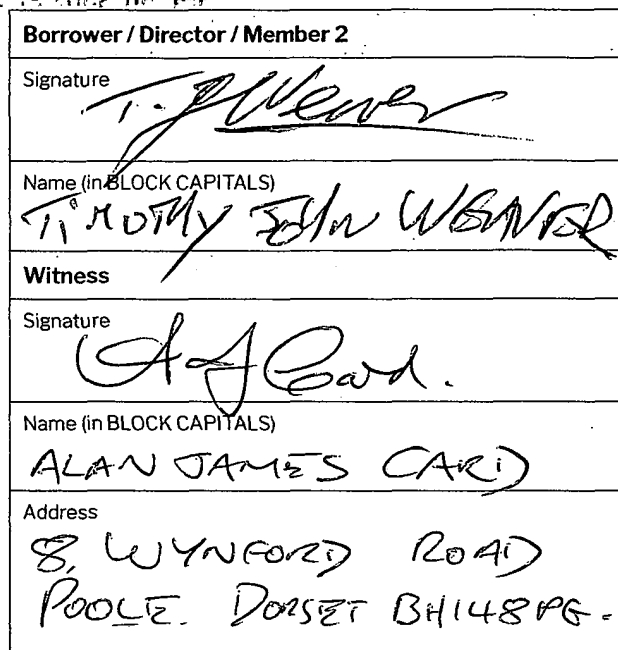 Borrower / Director / Member 2
Signature
T. J Weaver
Name (in BLOCK CAPITALS)
TIMOTHY JOHN WEAVER
Witness
Signature
A J Card.
Name (in BLOCK CAPITALS)
ALAN JAMES CARD
Address
8, WYNFORD ROAD
POOLE. DORSET BH14 8PG.